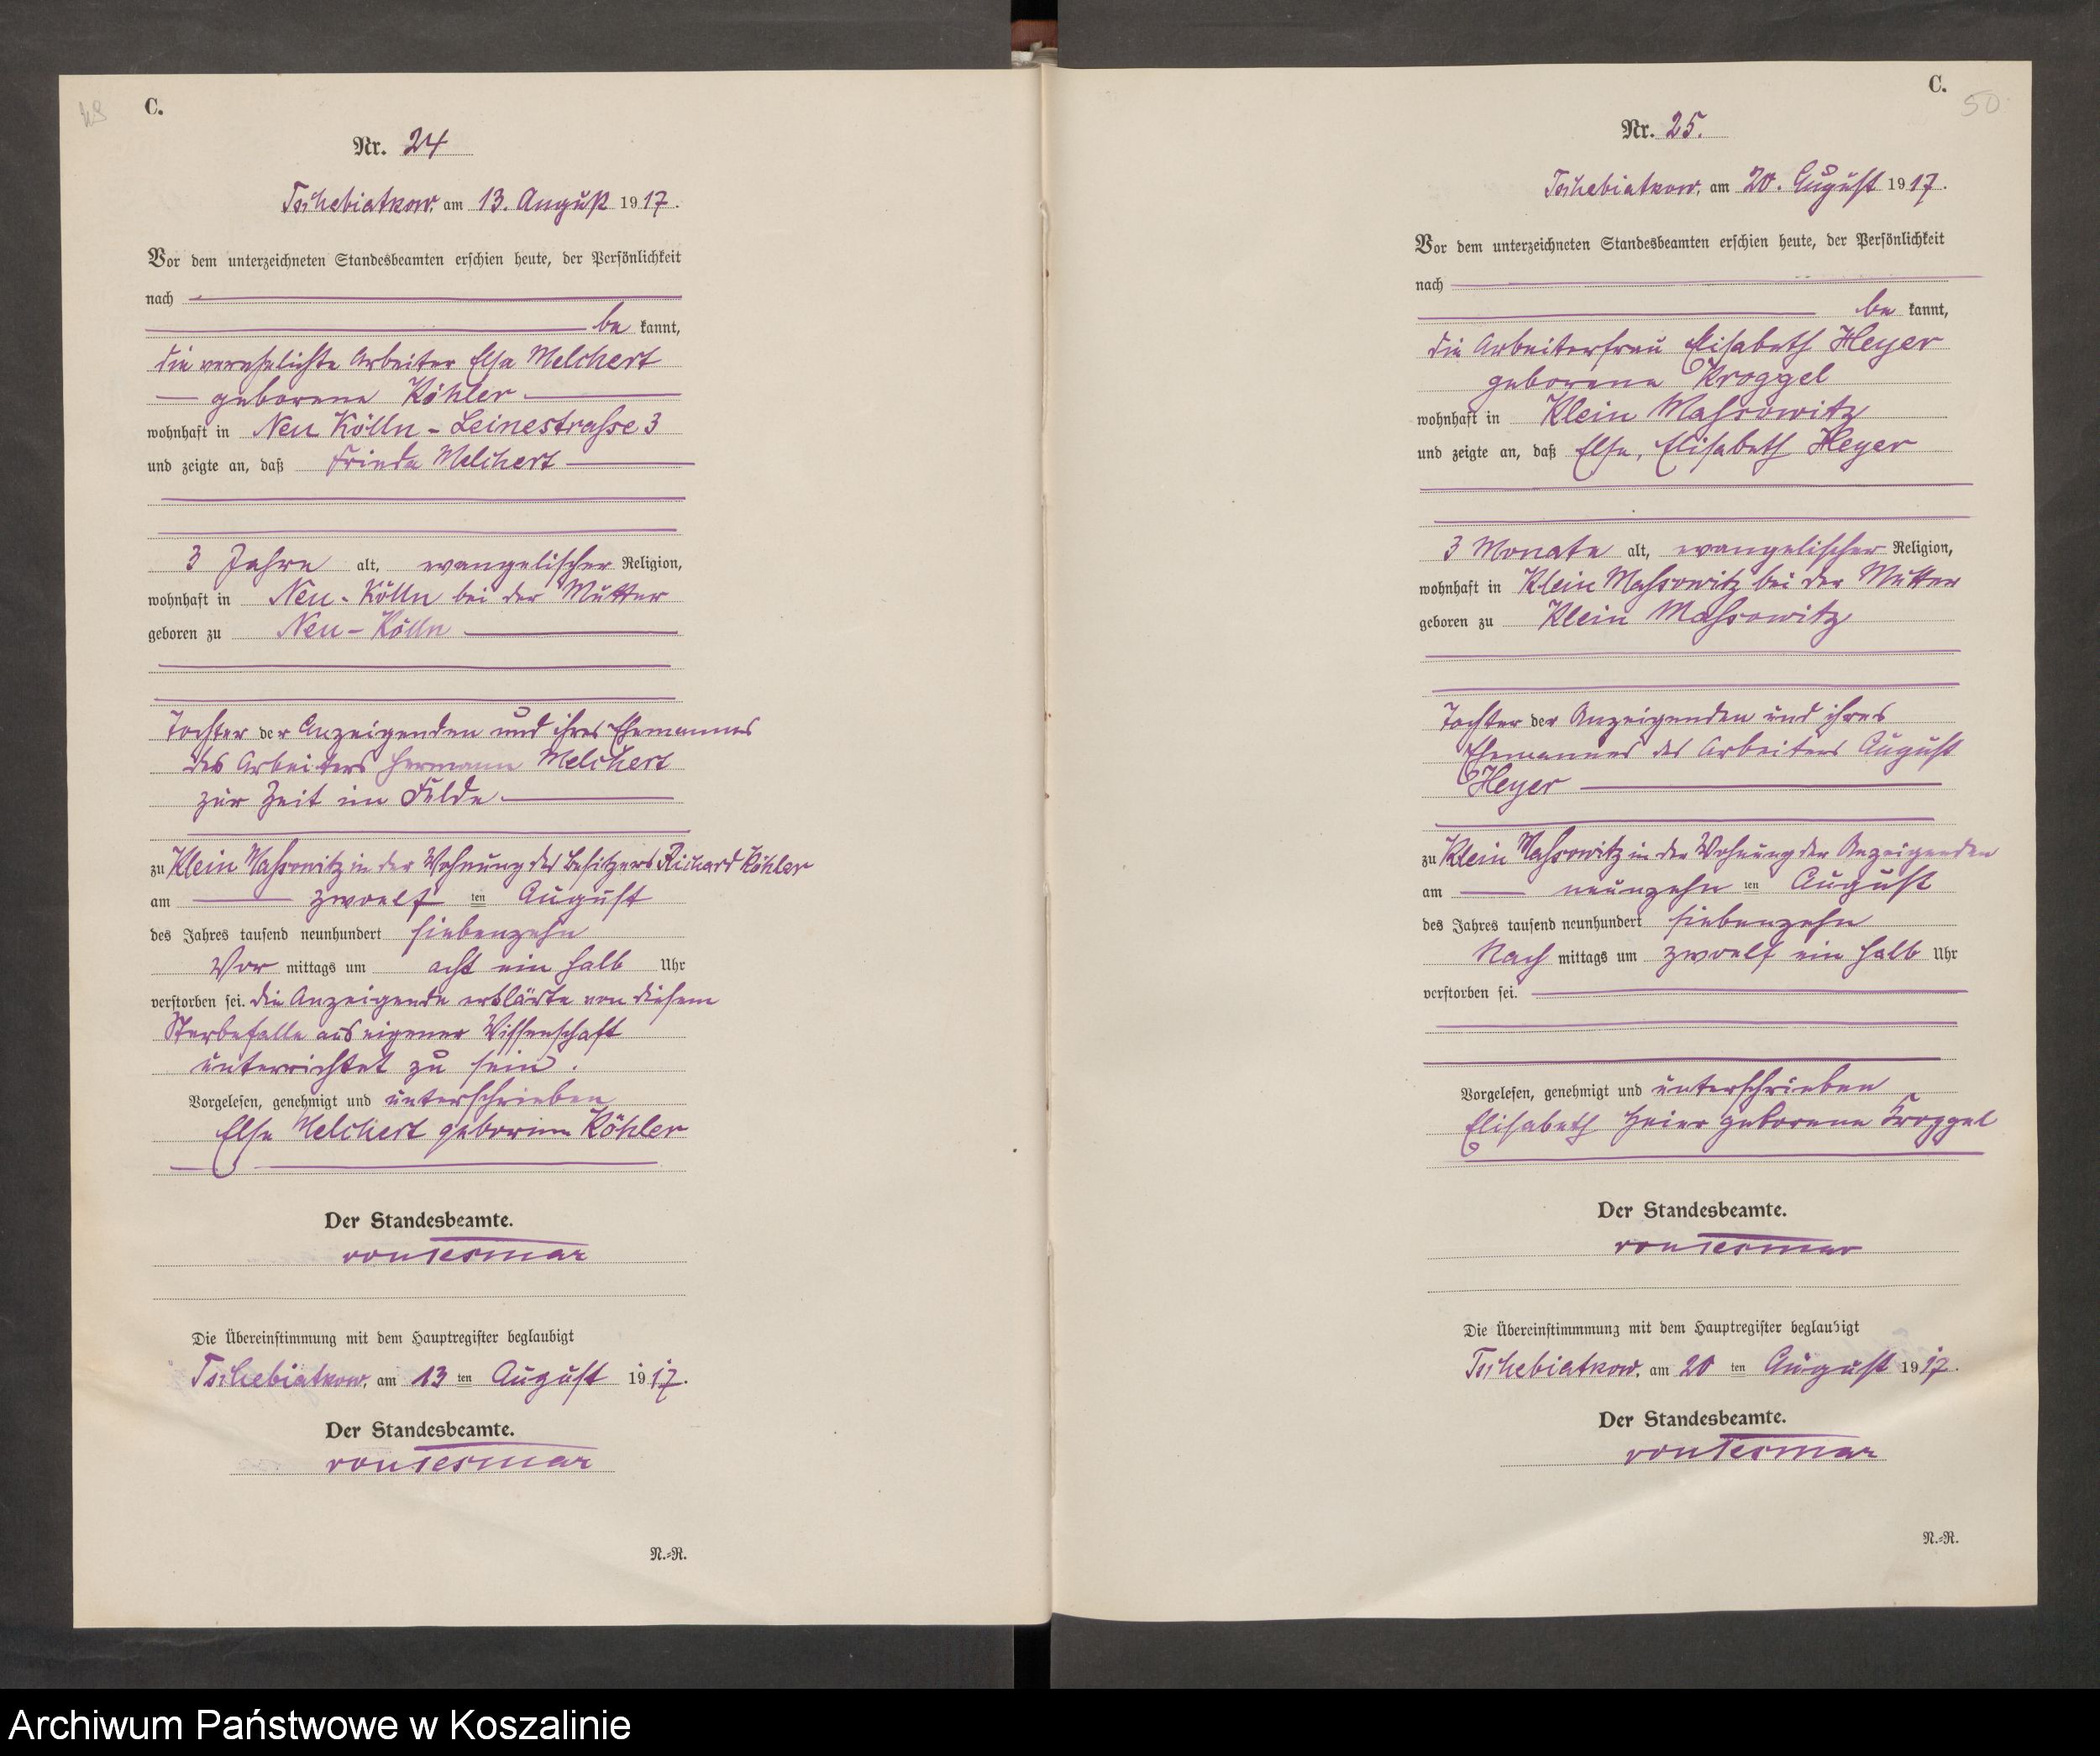 49
C.
Nr. 24
Tschebiatkow, am 13. August 1917.
Vor dem unterzeichneten Standesbeamten erschien heute, der Persönlichkeit
nach
be kannt,
die verehelichte Arbeiter Elsa Melchert
geborene Köhler
wohnhaft in Neu Kölln - Leinestrasse 3
und zeigte an, daß Frieda Melchert
3 Jahre alt, evangelischer Religion,
wohnhaft in Neu-Kölln bei der Mutter
geboren zu Neu-Kölln
Tochter der Anzeigenden und ihres Ehemannes
des Arbeiters Hermann Melchert
zur Zeit im Felde
zu Klein Massowitz in der Wohnung des Besitzers Richard Köhler
am zwoelf ten August
des Jahres tausend neunhundert siebenzehn
Vor mittags um acht ein halb Uhr
verstorben sei. Die Anzeigende erklärte von diesem
Sterbefalle aus eigener Wissenschaft
unterrichtet zu sein.
Vorgelesen, genehmigt und unterschrieben
Elsa Melchert geborene Köhler
Der Standesbeamte.
von Tesmar
Die Übereinstimmung mit dem Hauptregister beglaubigt
Tschebiatkow, am 13 ten August 1917.
Der Standesbeamte.
von Tesmar
N.=R.
C.
50
Nr. 25.
Tschebiatkow, am 20. August 1917.
Vor dem unterzeichneten Standesbeamten erschien heute, der Persönlichkeit
nach
be kannt,
die Arbeiterfrau Elisabeth Heyer
geborene Kroggel
wohnhaft in Klein Massowitz
und zeigte an, daß Else, Elisabeth Heyer
3 Monate alt, evangelischer Religion,
wohnhaft in Klein Massowitz bei der Mutter
geboren zu Klein Massowitz
Tochter der Anzeigenden und ihres
Ehemannes des Arbeiters August
Heyer
zu Klein Massowitz in der Wohnung der Anzeigenden
am neunzehn ten August
des Jahres tausend neunhundert siebenzehn
Nach mittags um zwoelf ein halb Uhr
verstorben sei.
Vorgelesen, genehmigt und unterschrieben
Elisabeth Heier geborene Kroggel
Der Standesbeamte.
von Tesmar
Die Übereinstimmung mit dem Hauptregister beglaubigt
Tschebiatkow, am 20 ten August 1917.
Der Standesbeamte.
von Tesmar
N.=R.
Archiwum Państwowe w Koszalinie